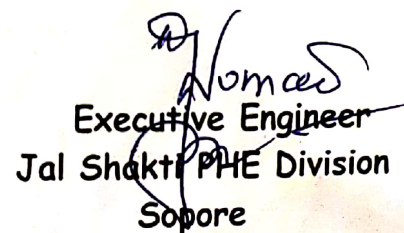 Executive Engineer
Jal Shakti PHE Division
Sopore